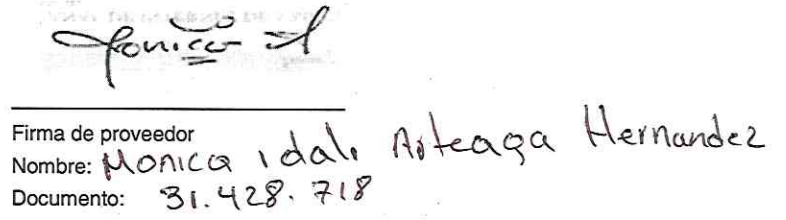 Monica A
Firma de proveedor
Nombre: Monica idali Arteaga Hernandez
Documento: 31.428.718